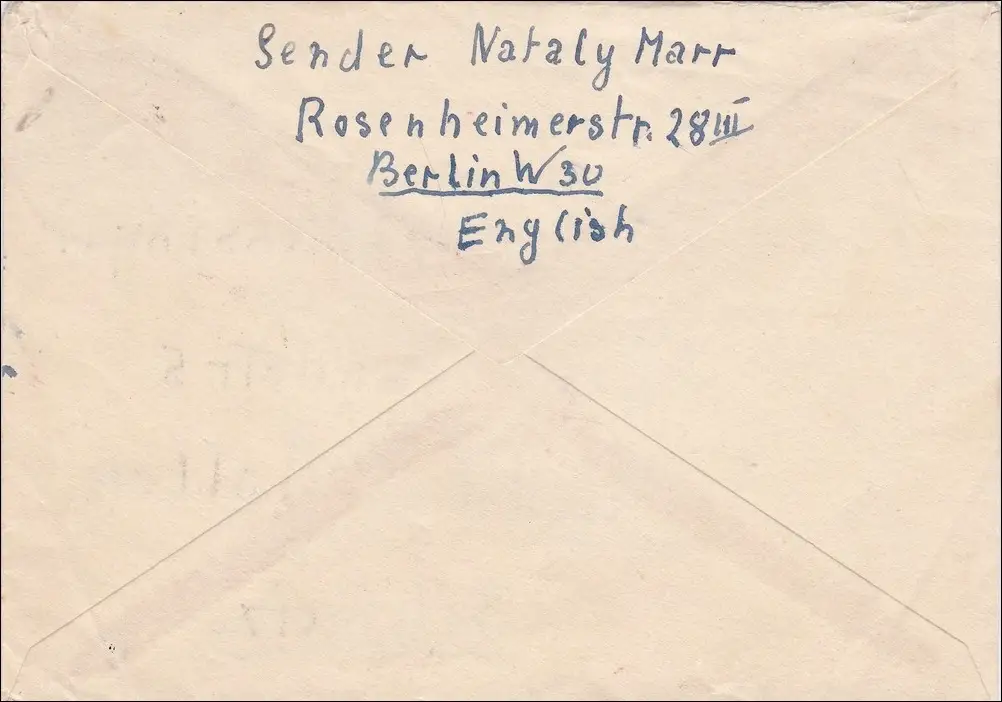 Sender Nataly Marr
Rosenheimerstr. 28 III
Berlin W 30
English